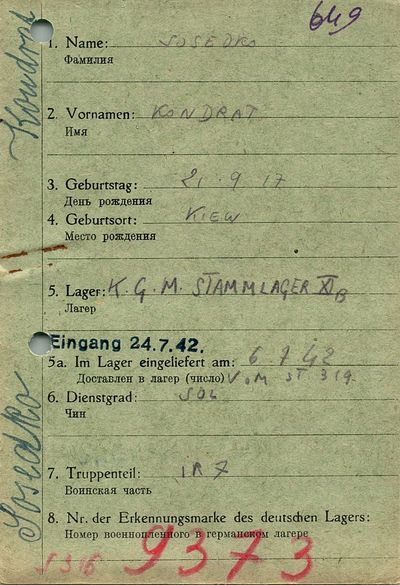 649
1. Name: SOSEDKO
Фамилия
2. Vornamen: KONDRAT
Имя
3. Geburtstag: 21.9.17
День рождения
4. Geburtsort: KIEW
Место рождения
5. Lager: K.G.M. STAMMLAGER XI B
Лагер
Eingang 24.7.42.
5a. Im Lager eingeliefert am: 6 7 42
Доставлен в лагер (число) VOM ST 319
6. Dienstgrad: SOL
Чин
7. Truppenteil: IR 7
Воинская часть
8. Nr. der Erkennungsmarke des deutschen Lagers:
Номер военнопленного в германском лагере
9373
Sosedko Kondrat